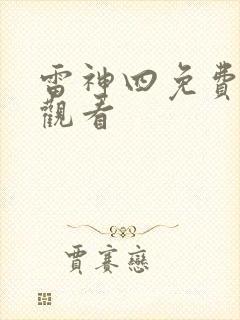 雷神四免費
觀看
賈賽戀